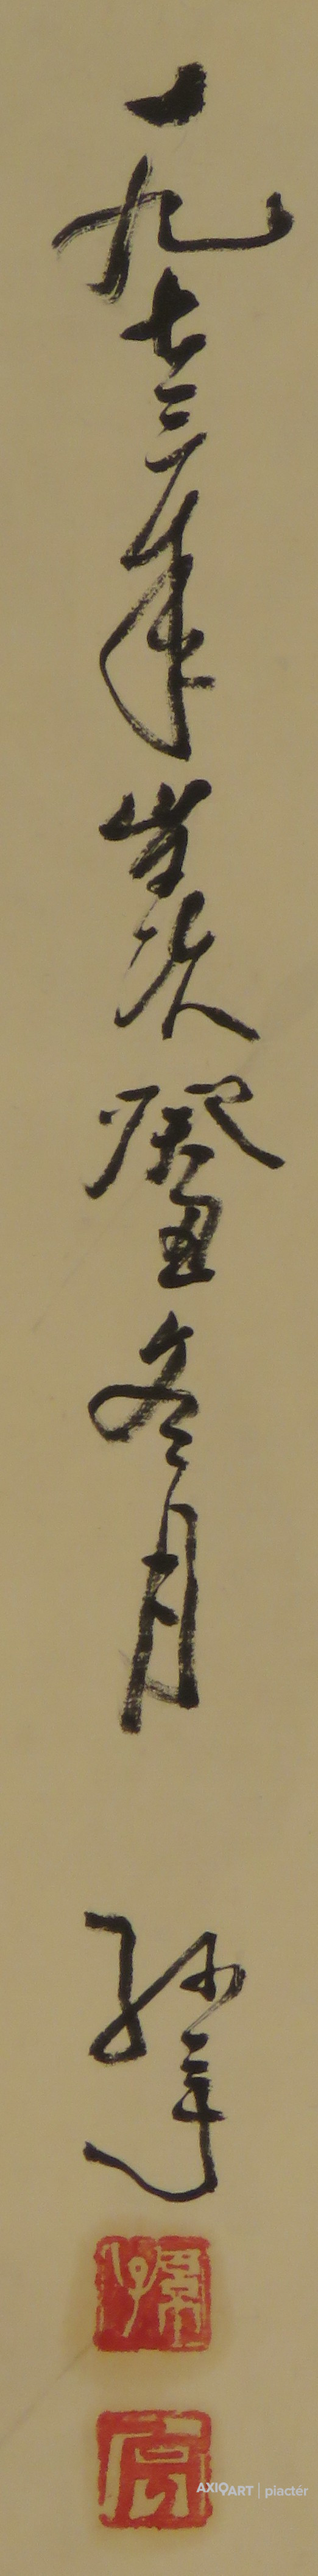 一九七三年岁次癸丑冬月
孫
孫
AXIOART | piactér